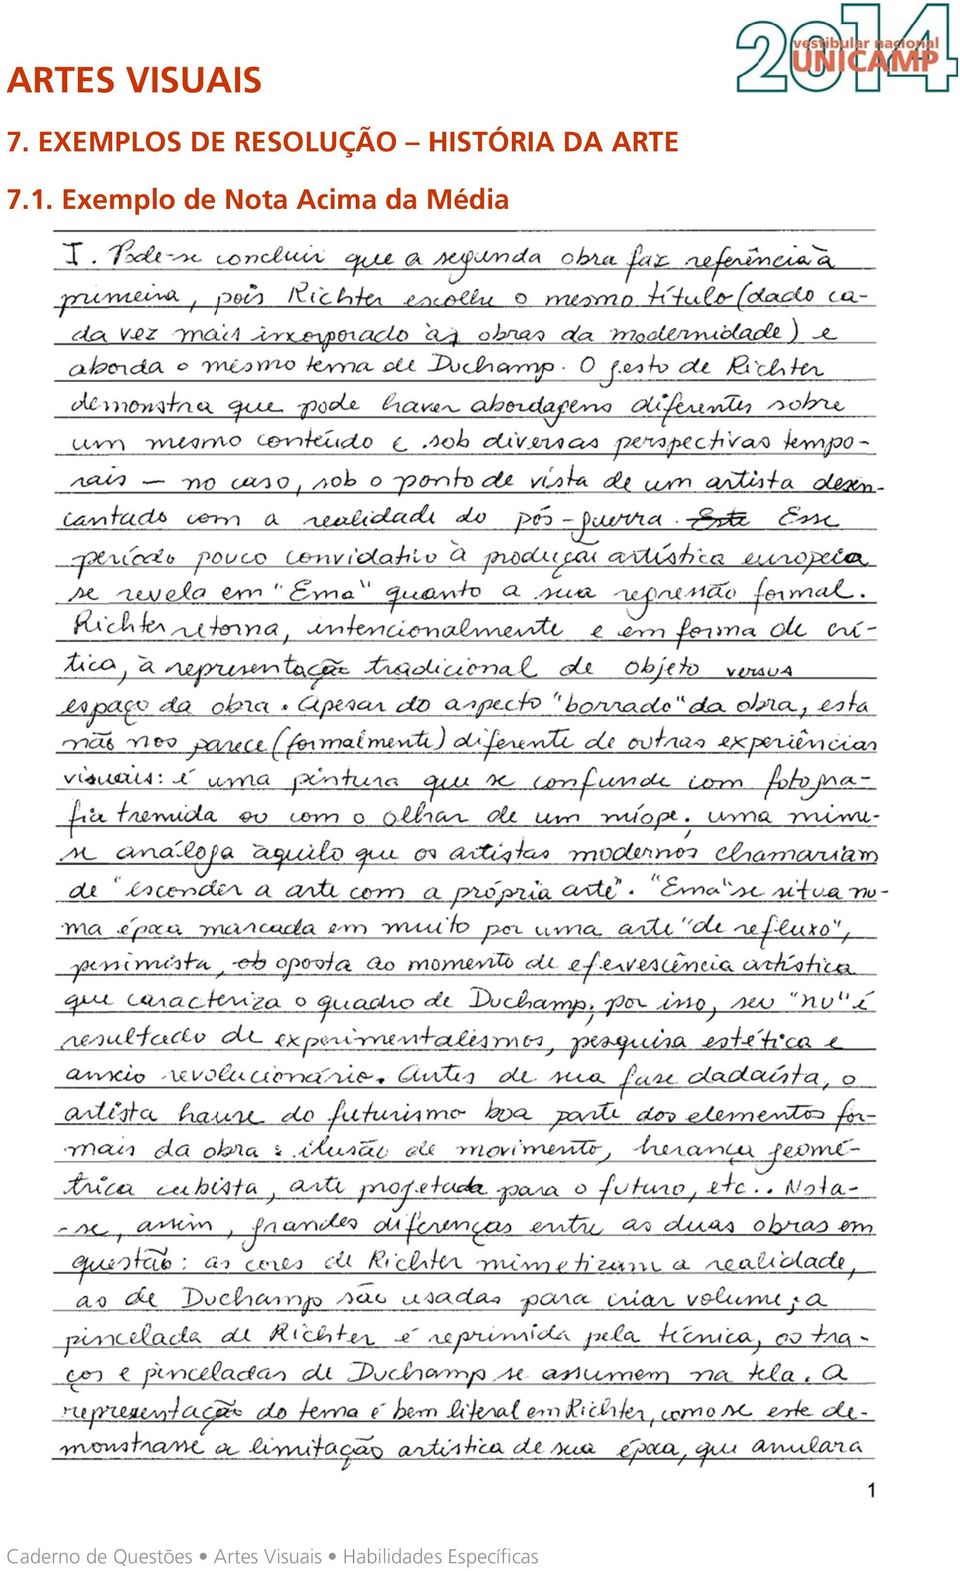 ARTES VISUAIS
2014
vestibular nacional
UNICAMP
7. EXEMPLOS DE RESOLUÇÃO – HISTÓRIA DA ARTE
7.1. Exemplo de Nota Acima da Média
I. Pode-se concluir que a segunda obra faz referência à
primeira, pois Richter escolhe o mesmo título (dado ca-
da vez mais incorporado às obras da modernidade) e
aborda o mesmo tema de Duchamp. O gesto de Richter
demonstra que pode haver abordagens diferentes sobre
um mesmo conteúdo e sob diversas perspectivas tempo-
rais — no caso, sob o ponto de vista de um artista desen-
cantado com a realidade do pós-guerra. Este Esse
período pouco convidativo à produção artística europeia
se revela em "Ema" quanto a sua regressão formal.
Richter retorna, intencionalmente e em forma de crí-
tica, à representação tradicional de objeto versus
espaço da obra. Apesar do aspecto "borrado" da obra, esta
não nos parece (formalmente) diferente de outras experiências
visuais: é uma pintura que se confunde com fotogra-
fia tremida ou com o olhar de um míope; uma mime-
se análoga àquilo que os artistas modernos chamariam
de "esconder a arte com a própria arte". "Ema" se situa nu-
ma época marcada em muito por uma arte "de refluxo",
pessimista, ob oposta ao momento de efervescência artística
que caracteriza o quadro de Duchamp; por isso, seu "nu" é
resultado de experimentalismos, pesquisa estética e
anseio revolucionário. Antes de sua fase dadaísta, o
artista haure do futurismo boa parte dos elementos for-
mais da obra: ilusão de movimento, herança geomé-
trica cubista, arte projetada para o futuro, etc.. Nota-
-se, assim, grandes diferenças entre as duas obras em
questão: as cores de Richter mimetizam a realidade,
as de Duchamp são usadas para criar volume; a
pincelada de Richter é reprimida pela técnica, os tra-
ços e pinceladas de Duchamp se assumem na tela. A
representação do tema é bem literal em Richter, como se este de-
monstrasse a limitação artística de sua época, que anulara
1
Caderno de Questões • Artes Visuais • Habilidades Específicas